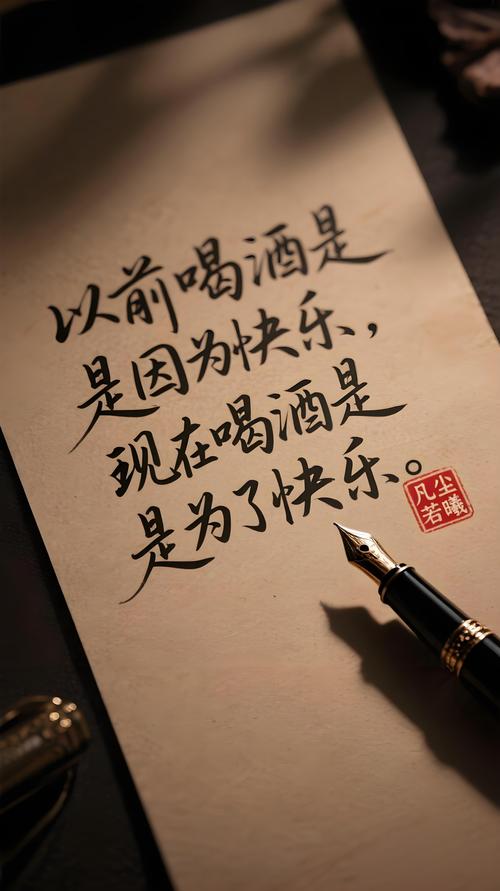 以前喝酒是
是因为快乐，
现在喝酒是
是为了快乐。
凡尘
若曦